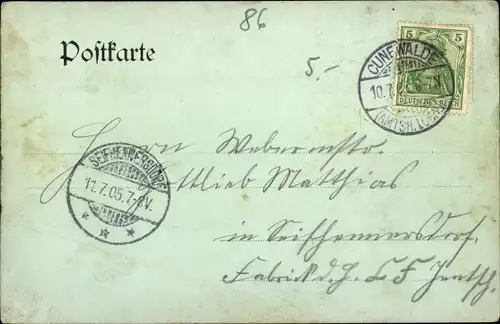 86
Postkarte
5.-
5 5
DEUTSCHES REICH
CUNEWALDE
10.7.
(AMTSH. LÖBAU)
Herrn Webermstr.
Gottlieb Matthias
in Seifhennersdorf,
Fabrik d. H. C F Jentsch.
SEIFHENNERSDORF
11.7.05.7-8V.